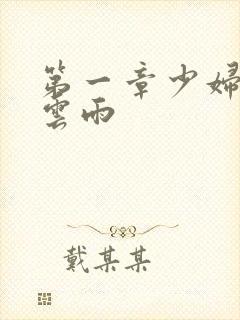 第一章少婦
雲雨
戴某某